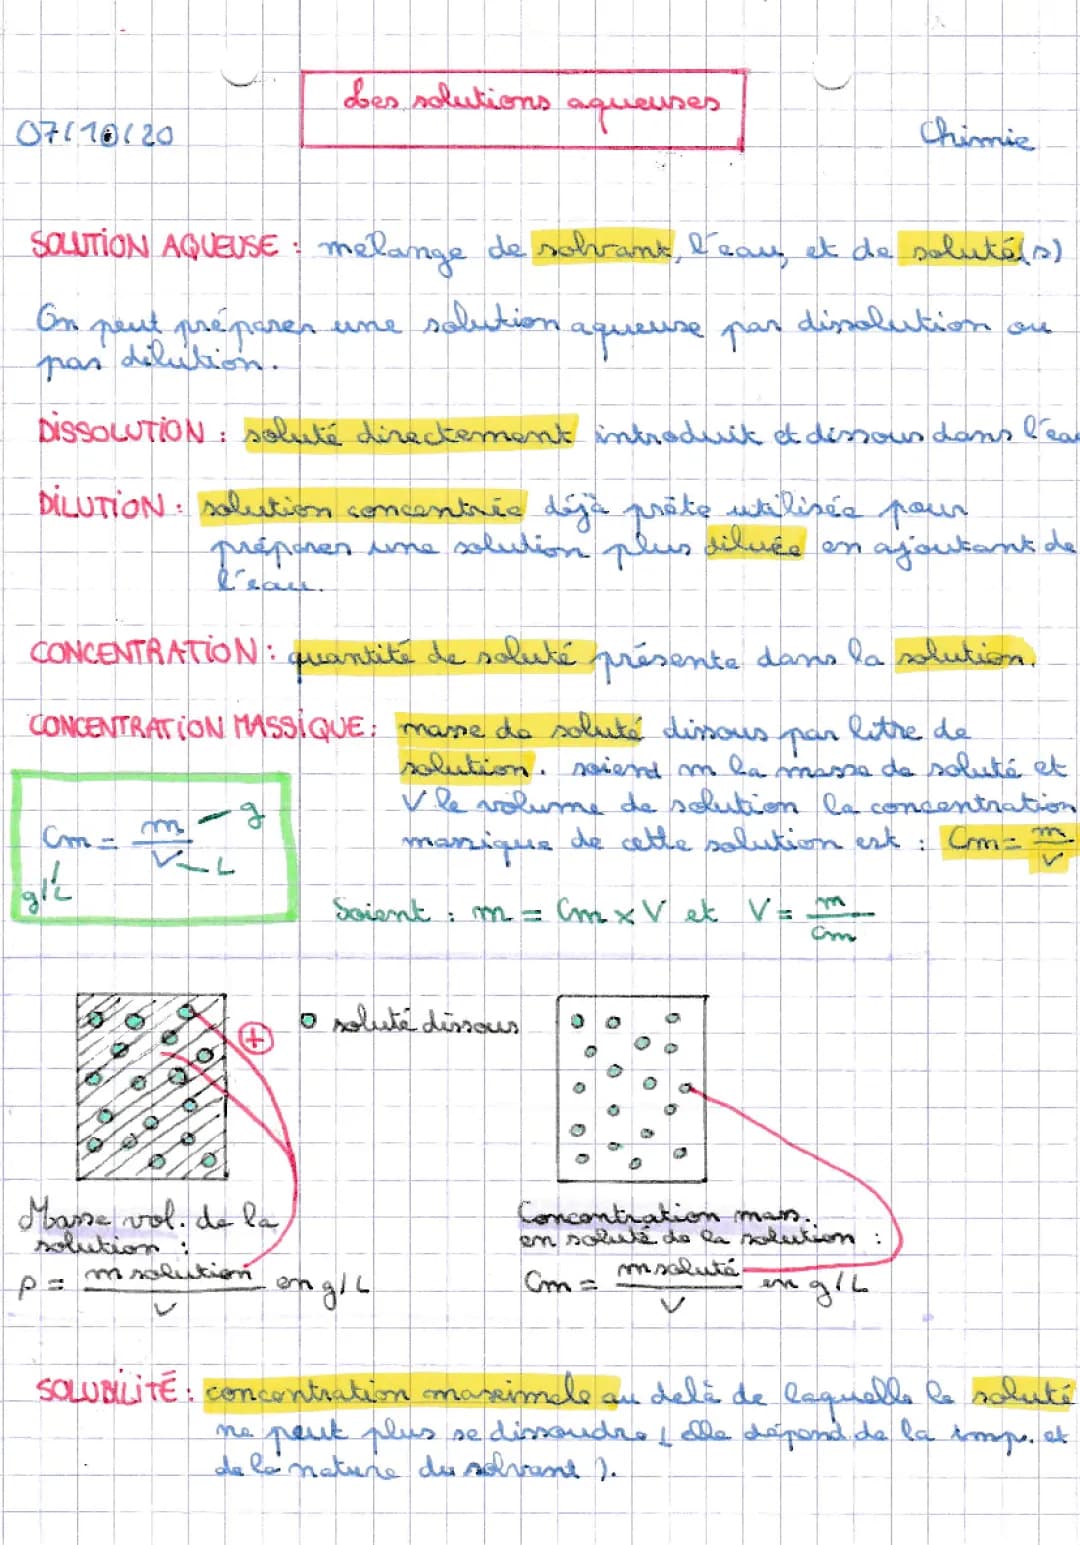 Les solutions aqueuses
07/10/20
Chimie
SOLUTION AQUEUSE : mélange de solvant, l'eau, et de soluté(s)
On peut préparer une solution aqueuse par dissolution ou
par dilution.
DISSOLUTION : soluté directement introduit et dissous dans l'eau
DILUTION : solution concentrée déjà prête utilisée pour
préparer une solution plus diluée en ajoutant de
l'eau.
CONCENTRATION : quantité de soluté présente dans la solution.
CONCENTRATION MASSIQUE : masse de soluté dissous par litre de
solution. soient m la masse de soluté et
V le volume de solution la concentration
massique de cette solution est : Cm = m/V
Cm = m/V
g
L
g/L
Soient : m = Cm x V et V = m/Cm
+
soluté dissous
Masse vol. de la
solution :
ρ = m solution/V en g/L
Concentration mass.
en soluté de la solution :
Cm = m soluté/V en g/L
SOLUBILITÉ : concentration maximale au delà de laquelle le soluté
ne peut plus se dissoudre ( elle dépend de la temp. et
de la nature du solvant ).